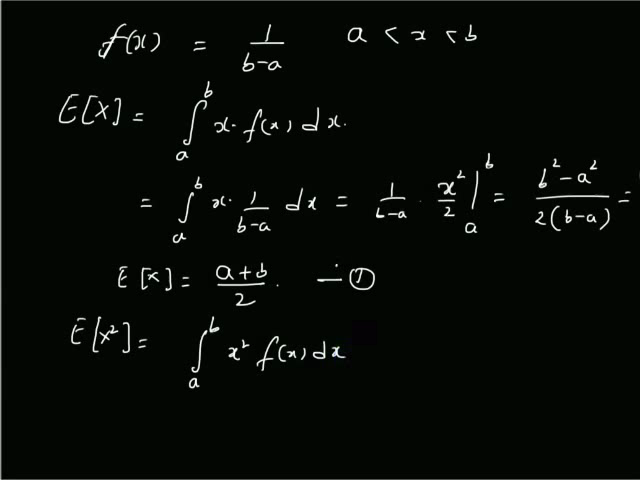 f(x) = 1/(b-a)    a < x < b
E[X] = ∫_a^b x. f(x) dx.
= ∫_a^b x. 1/(b-a) dx = 1/(b-a) . x²/2 |_a^b = (b²-a²)/(2(b-a)) =
E[x] = (a+b)/2 . —①
E[x²] = ∫_a^b x² f(x) dx